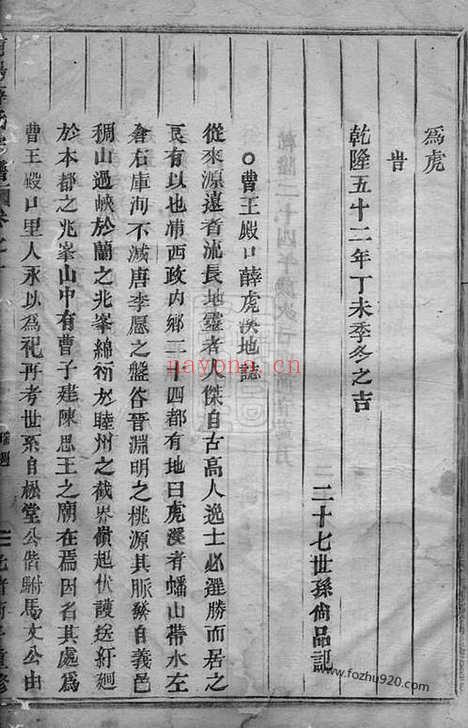 為虎
昔
乾隆五十二年丁未季冬之吉
二十七世孫尙品記
○曹王殿口薛虎溪地誌
從來源遠者流長地靈者人傑自古高人逸士必選勝而居之
良有以也浦西政內鄉三十四都有地曰虎溪者蟠山帶水左
倉右庫洵不減唐李愿之盤谷晉淵明之桃源其脈發自義邑
稠山過峽於蘭之兆峯綿衍於睦州之截界嶺起伏護送紆廻
於本都之兆峯山中有曹子建陳思王之廟在焉因名其處為
曹王殿口里人永以為祀再考世系自松堂公偕駙馬文公由
nayona.cn
www.fozhu920.com